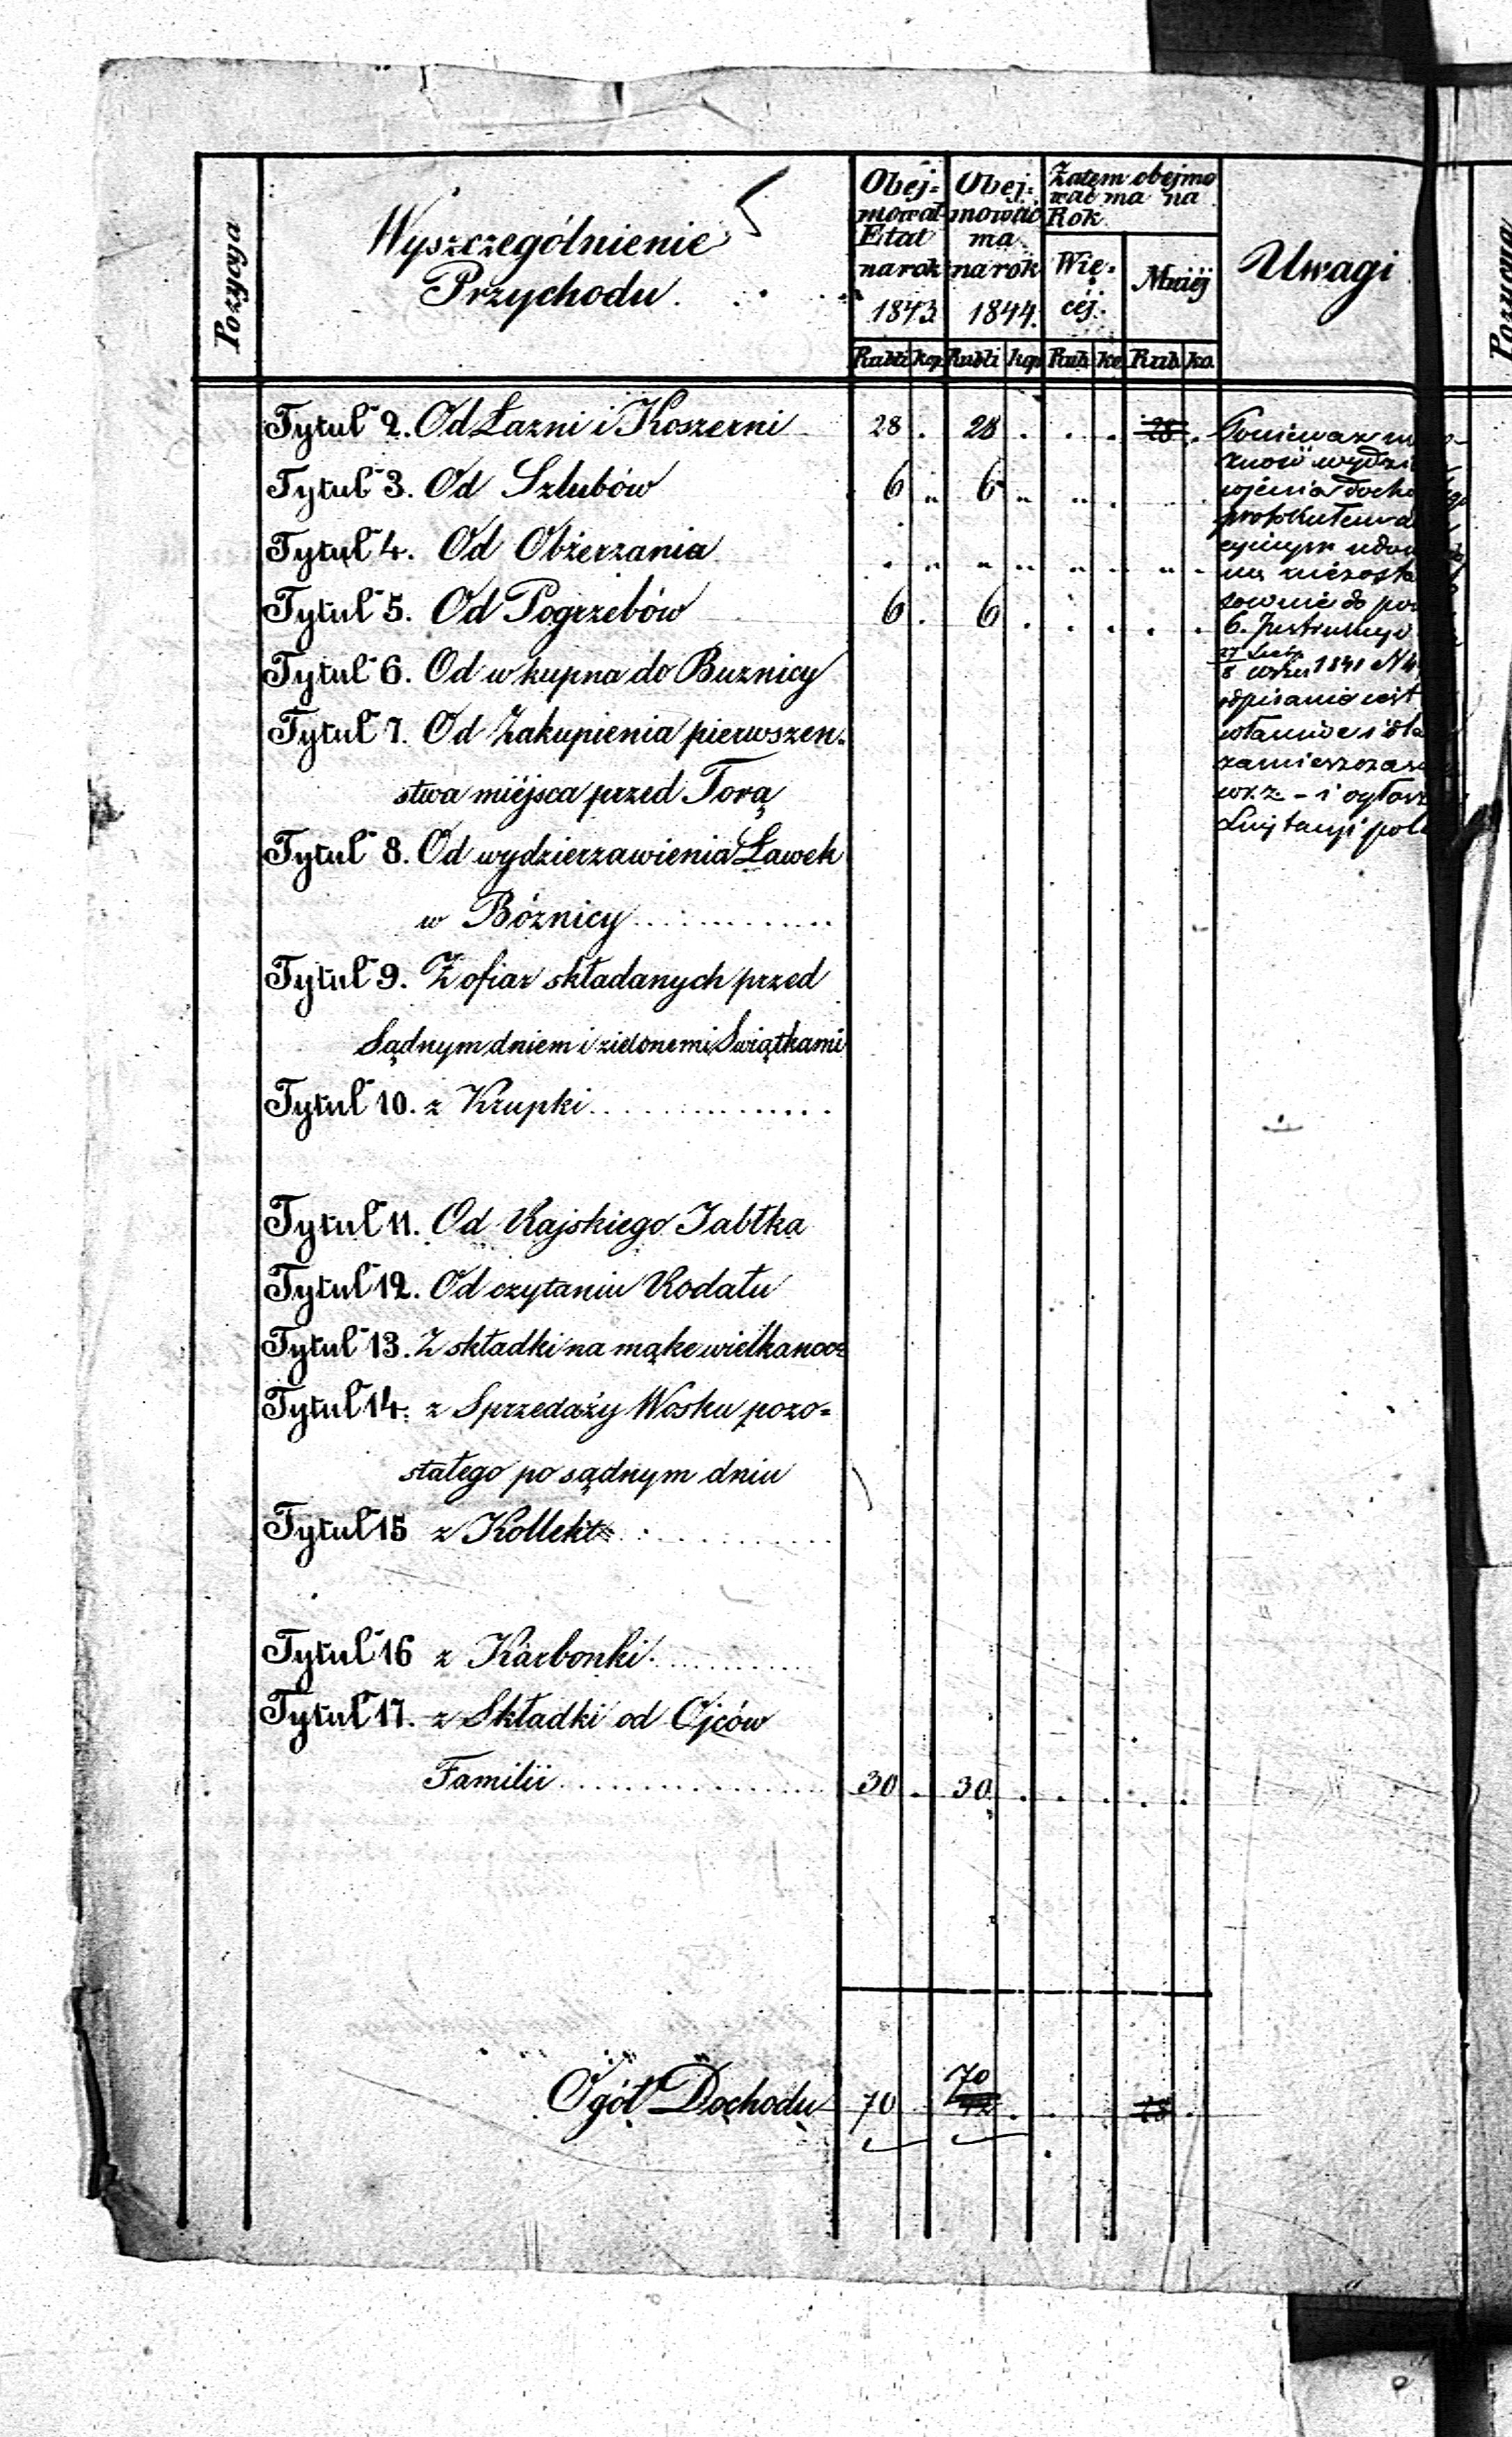 Pozycya
Wyszczególnienie
Przychodu.
Obej=
mował
Etat
na rok
1843.
Obej=
mować
ma
na rok
1844.
Zatem obejmo
wać ma na
Rok
Wię=
cej.
Mniéj
Uwagi
Rubli kop Rubli kop Rub ko Rub ko.
Tytuł 2. Od Łazni i Koszerni 28 . 28 . . . 28 .
Tytuł 3. Od Szlubów 6 „ 6 „ „ .
Tytuł 4. Od Obżerzania . „ „ „ „ . „ .
Tytuł 5. Od Pogrzebów 6 . 6 . . . . .
Tytuł 6. Od wkupna do Buznicy
Tytuł 7. Od Zakupienia pierwszen=
stwa miéjsca przed Torą
Tytuł 8. Od wydzierzawienia Ławek
w Bóznicy
Tytuł 9. Z ofiar składanych przed
Sądnym dniem i zielonemi Swiątkami
Tytuł 10. z Krupki
Tytuł 11. Od Rajskiego Jabłka
Tytuł 12. Od czytaniu Rodału
Tytuł 13. Z składki na mąke wielkanoc
Tytuł 14. z Sprzedaży Wosku pozo=
stałego po sądnym dniu
Tytuł 15 z Kollekt
Tytuł 16 z Karbonki
Tytuł 17. z Składki od Ojców
Familii 30 . 30 . . . . .
Ogół Dochodu 70 70 42 . . 28 .
Poniewaz
6.
1841 N
zamieszcza
i